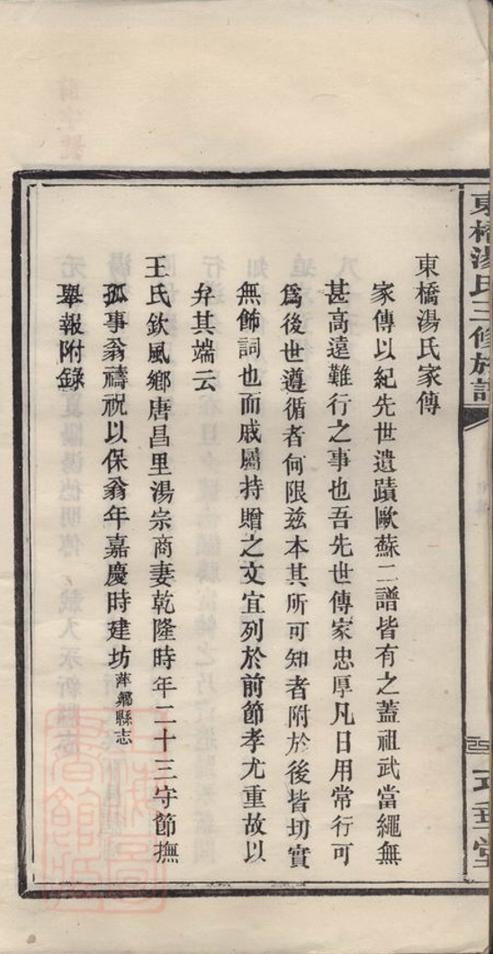 東橋湯氏三修族譜
東橋湯氏家傳
家傳以紀先世遺蹟歐蘇二譜皆有之蓋祖武當繩無
甚高遠難行之事也吾先世傳家忠厚凡日用常行可
爲後世遵循者何限兹本其所可知者附於後皆切實
無飾詞也而戚屬持贈之文宜列於前節孝尤重故以
弁其端云
王氏欽風鄉唐昌里湯宗商妻乾隆時年二十三守節撫
孤事翁禱祝以保翁年嘉慶時建坊萍鄉縣志
舉報附錄